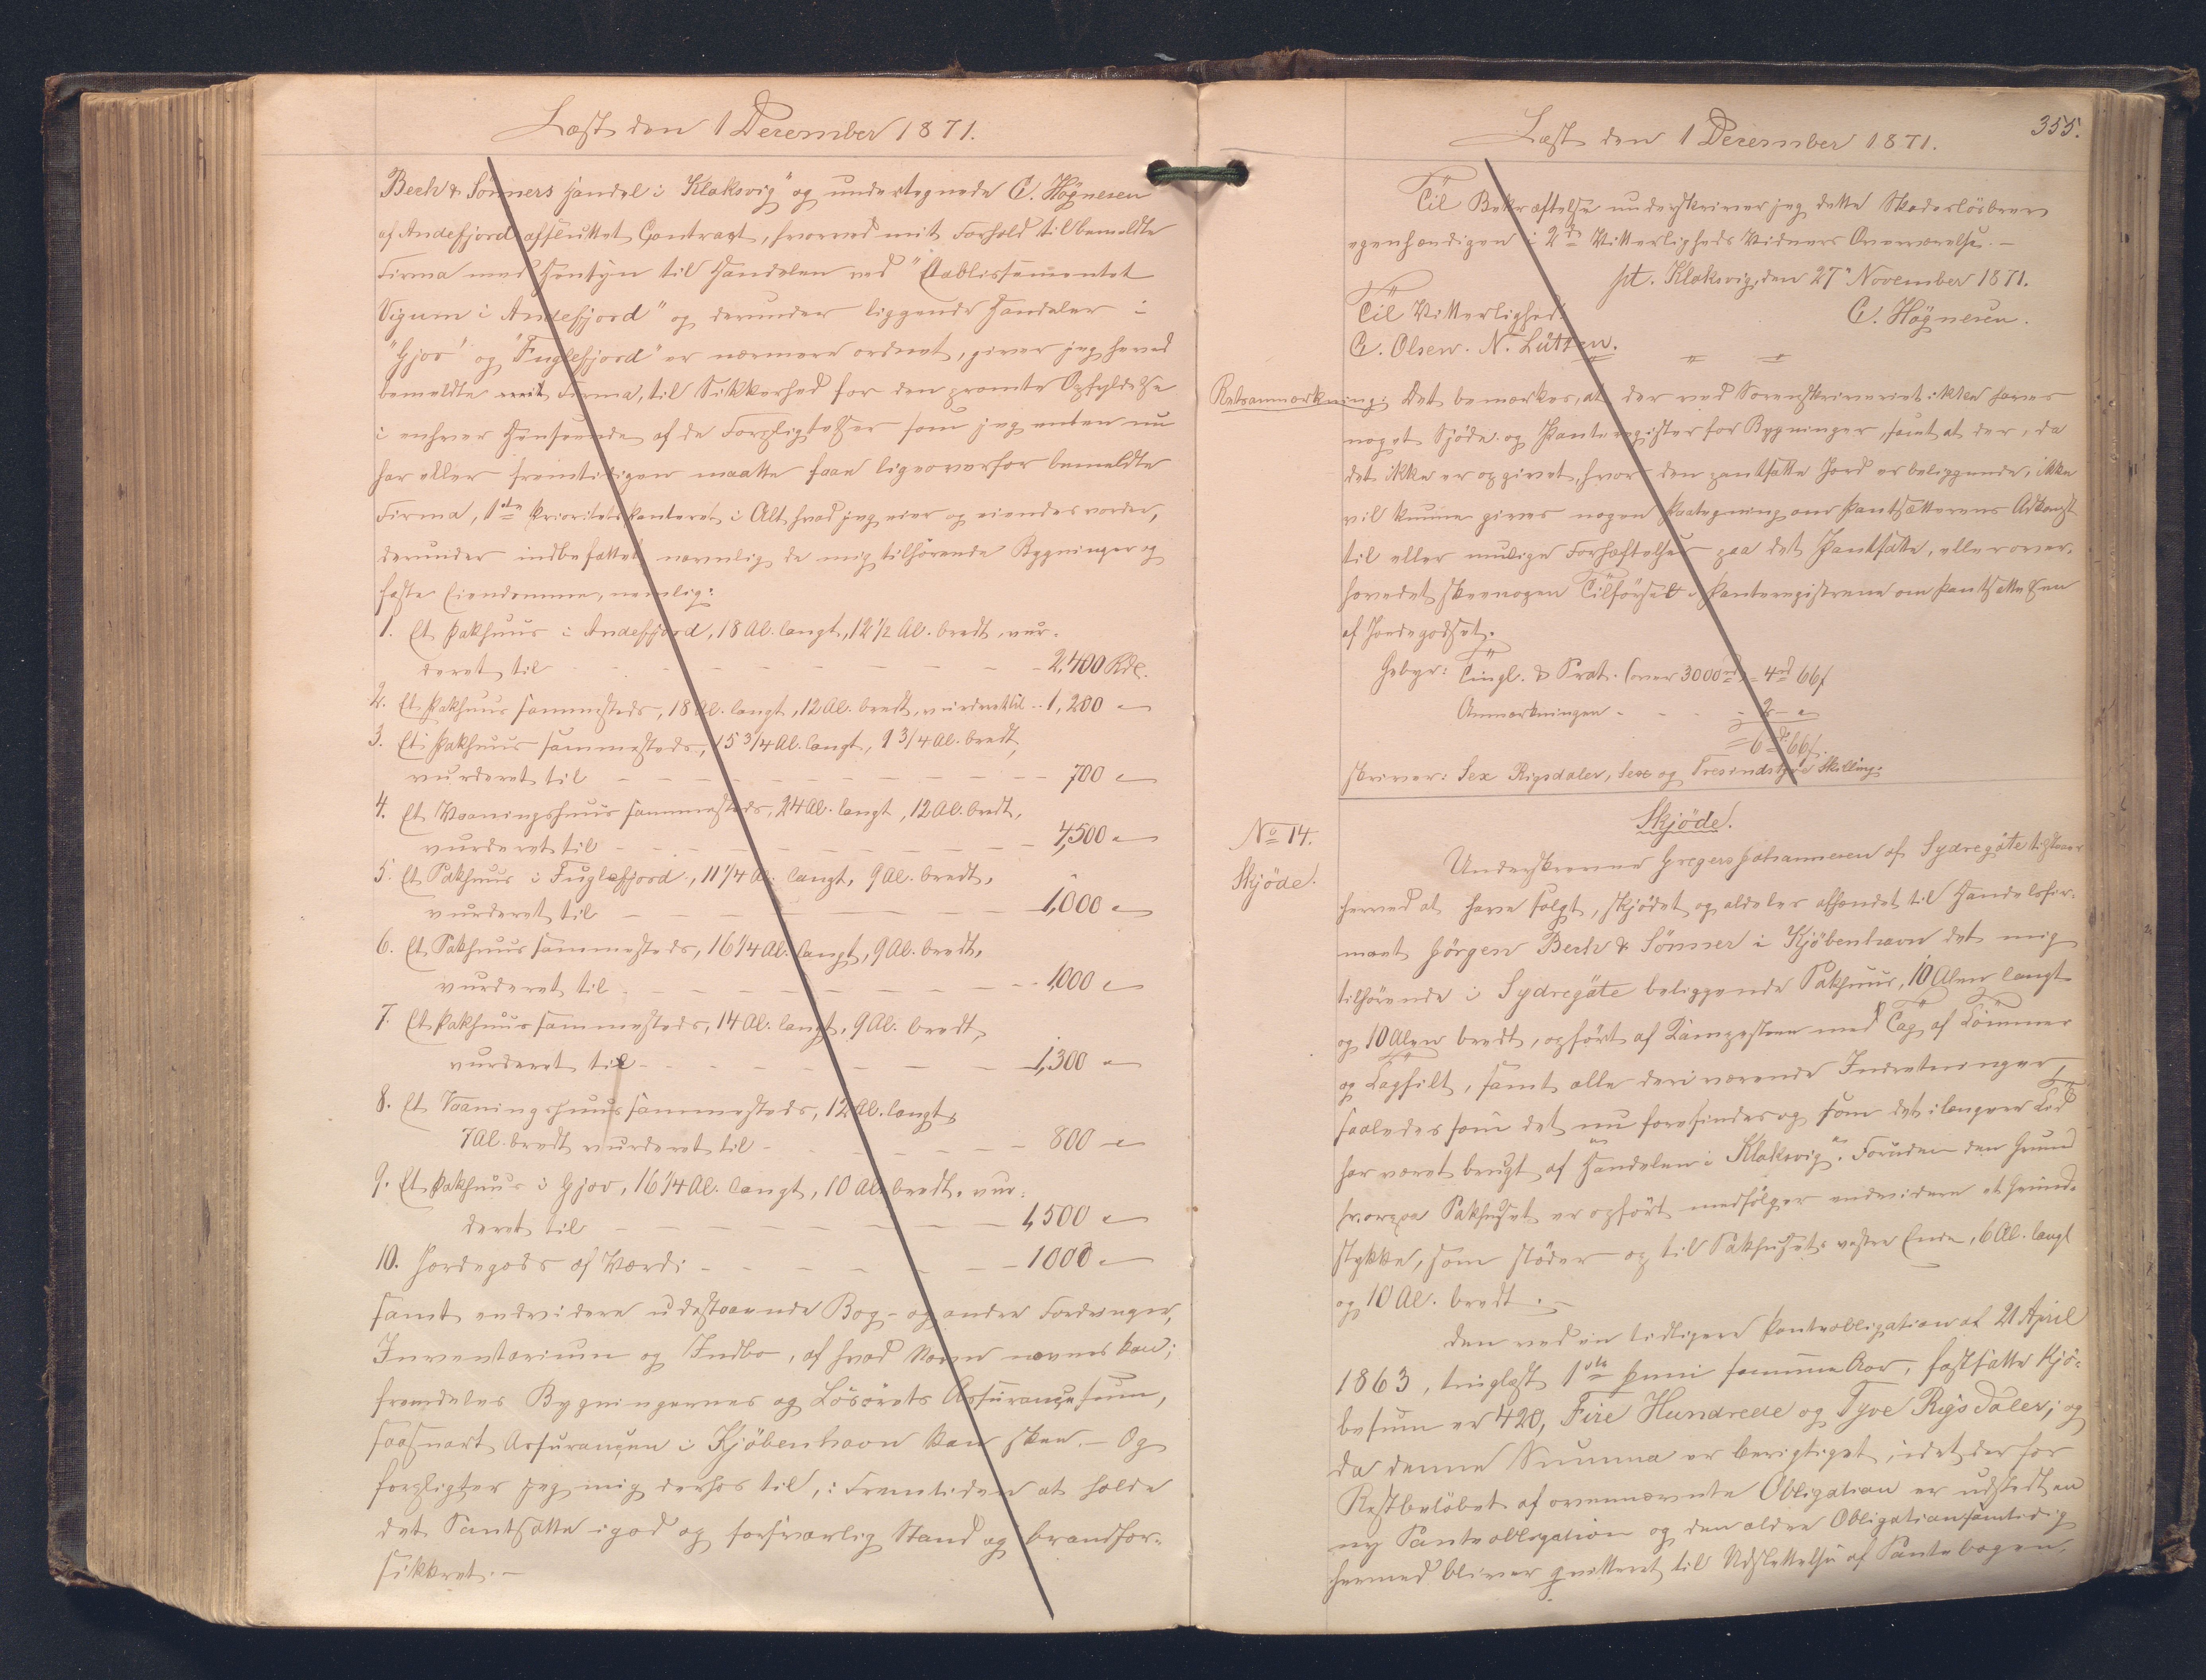 Læst den 1 December 1871.
Bech & Sønners Handel i Klaksvig" og undertegnede C. Høgnesen
af Andefjord afsluttet Contract, hvorved mit Forhold til bemeldte
Firma med Hensyn til Handelen ved "Etablissementet
Vigum i Andefjord" og derunder liggende Handeler i
"Gjov" og "Fuglefjord" er nærmere ordnet, giver jeg herved
bemeldte Firma, til Sikkerhed for den promte Opfyldelse
i enhver Henseende af de Forpligtelser som jeg enten nu
har eller fremtidigen maatte faae ligeoverfor bemeldte
Firma, 1ste Prioritets Panteret i Alt hvad jeg eier og eiendes vorder,
derunder indbefattet navnlig de mig tilhørende Bygninger og
faste Eiendomme, nemlig:
1. Et Pakhuus i Andefjord, 18 Al. langt, 12 1/2 Al. bredt, vur-
deret til - - - 2,400 Rdl.
2. Et Pakhuus sammesteds, 18 Al. langt, 12 Al. bredt, vurderet til - - 1,200 "
3. Et Pakhuus sammesteds, 15 3/4 Al. langt, 9 3/4 Al. bredt,
vurderet til - - - 700 "
4. Et Vaaningshuus sammesteds, 24 Al. langt, 12 Al. bredt,
vurderet til - - - 4,500 "
5. Et Pakhuus i Fuglefjord, 11 1/4 Al. langt, 9 Al. bredt,
vurderet til - - - 1,000 "
6. Et Pakhuus sammesteds, 16 1/4 Al. langt, 9 Al. bredt,
vurderet til - - - 1,000 "
7. Et Pakhuus sammesteds, 14 Al. langt, 9 Al. bredt,
vurderet til - - - 1,300 "
8. Et Vaaningshuus sammesteds, 12 Al. langt,
7 Al. bredt vurderet til - - - 800 "
9. Et Pakhuus i Gjov, 16 1/4 Al. langt, 10 Al. bredt, vur-
deret til - - - 1,500 "
10. Jordegods af Værdi - - - 1000 "
samt endvidere udestaaende Bog- og andre Fordringer,
Inventarium og Indbo, af hvad Navn nævnes kan;
fremdeles Bygningernes og Løsørets Assurancesum,
saasnart Assurancen i Kjøbenhavn kan skee. - Og
forpligter jeg mig derhos til, i Fremtiden at holde
det Pantsatte i god og forsvarlig Stand og brandfor-
sikkret. -
355.
Læst den 1 December 1871.
Til Bekræftelse underskriver jeg dette Skadesløsbrev
egenhændigen i 2de Vitterligheds Vidners Overværelse. -
pt. Klaksvig, den 27 November 1871.
Til Vitterlighed: C. Høgnesen.
C. Olsen. N. Lützen.
Retsanmærkning: Det bemærkes, at der ved Sorenskriveriet ikke haves
noget Skjøde- og Panteregister for Bygninger, samt at der, da
det ikke er opgivet, hvor den pantsatte Jord er beliggende, ikke
vil kunne gives nogen Paategning om Pantsætterens Adkomst
til eller mulige Forhæftelser paa det Pantsatte, eller over-
hovedet skee nogen Tilførsel i Panteregistrene om Pantsættelsen
af Jordegodset.
Gebyr: Tingl. & Prot. (over 3000 rd) = 4 rd 66 ß
Anmærkningen - - - 2 - "
= 6 rd 66 ß.
skriver: Sex Rigsdaler, Sex og Tresindstyve Skilling.
No 14.
Skjöde.
Skjöde.
Underskrevne Gregers Johannesen af Sydregöte tilstaaer
herved at have solgt, skjødet og aldeles afhændet til Handelsfir-
maet Jörgen Bech & Sönner i Kjöbenhavn det mig
tilhørende i Sydregöte beliggende Pakhuus, 10 Alen langt
og 10 Alen bredt, opført af Kampesteen med Tag af Tömmer
og Tagfilt, samt alle deri værende Indretninger,
saaledes som det nu forefindes og som det i længere Tid
har været brugt af "Handelen i Klaksvig". Foruden den Grund
hvorpaa Pakhuset er opført medfølger endvidere et Grund-
stykke, som støder op til Pakhusets vestre Ende, 6 Al. langt
og 10 Al. bredt. -
Den ved en tidligere Panteobligation af 21 April
1863, tinglæst 1ste Juni samme Aar, fastsatte Kjö-
besum er 420, Fire Hundrede og Tyve Rigsdaler; og
da denne Summa er berigtiget, idet der for
Restbeløbet af ovennævnte Obligation er udstedt en
ny Panteobligation og den ældre Obligation samtidig
hermed bliver qvitteret til Udslettelse af Pantebogen,